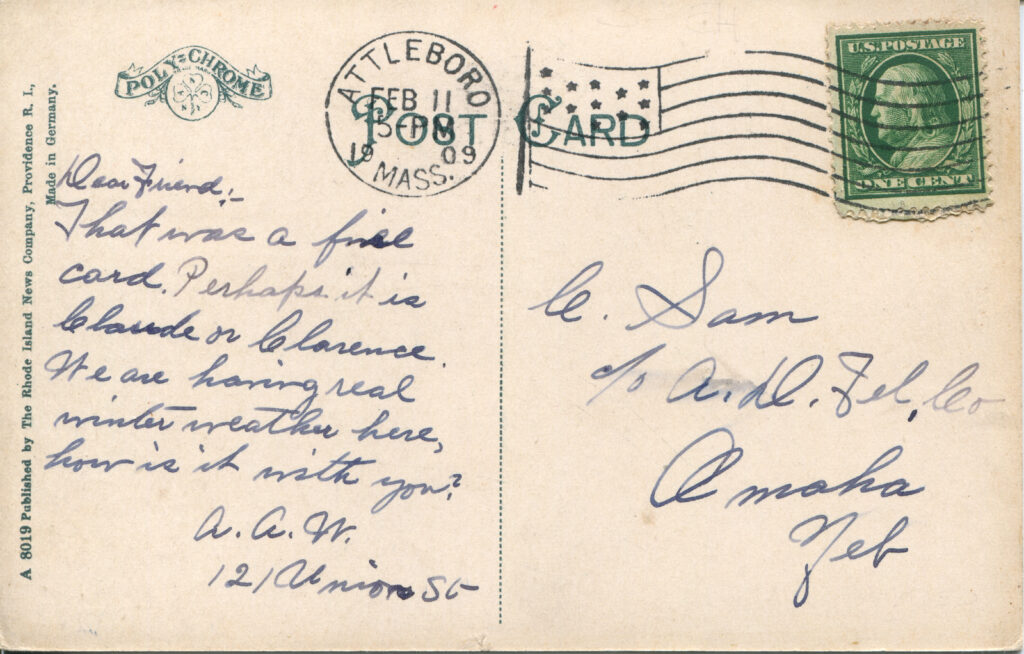 A 8019 Published by The Rhode Island News Company, Providence R. I.,
Made in Germany.
POLY-CHROME
ATTLEBORO
FEB 11
5-PM
1909
MASS.
POST CARD
U.S. POSTAGE
ONE CENT
Dear Friend:-
That was a fine
card. Perhaps it is
Claude or Clarence.
We are having real
winter weather here,
how is it with you?
A. A. W.
121 Union St
C. Sam
c/o A. D. Tel. Co
Omaha
Neb